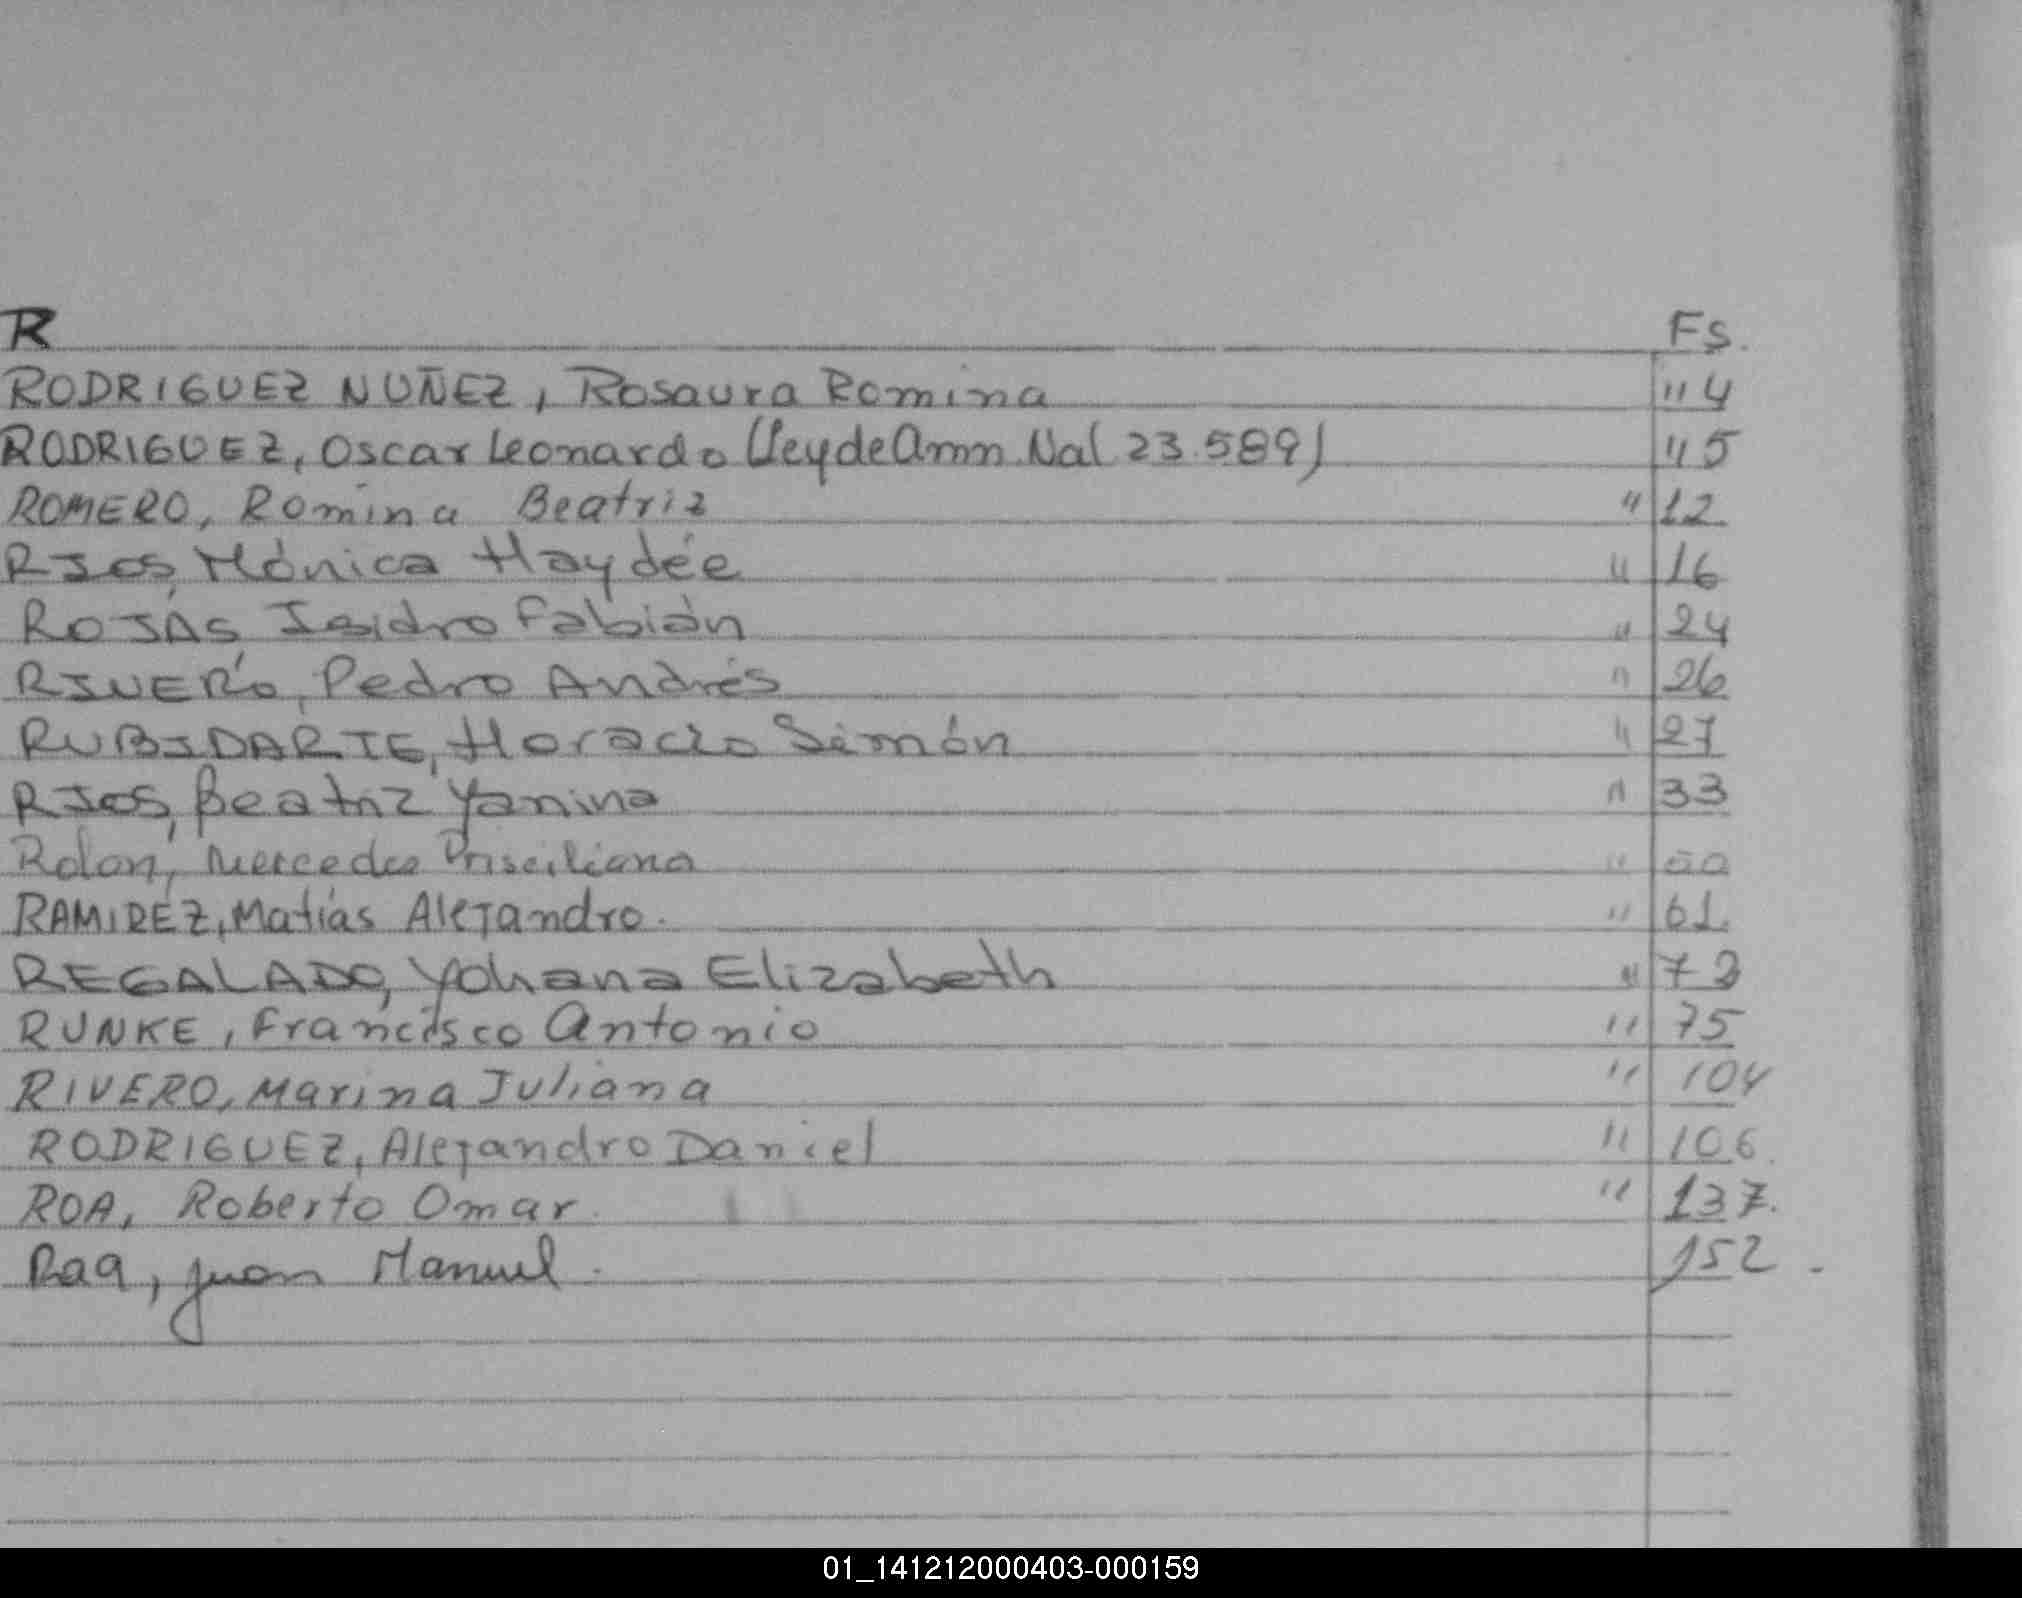 R Fs.
RODRIGUEZ NUÑEZ, Rosaura Romina " 4
RODRIGUEZ, Oscar Leonardo (Ley de Amn. Nal 23.589) " 5
ROMERO, Romina Beatriz " 12
RIOS, Mónica Haydée " 16
ROJAS, Isidro Fabián " 24
RIVERO, Pedro Andrés " 26
RUBIDARTE, Horacio Simón " 27
RIOS, Beatriz Yanina " 33
Rolon, Mercedes Prisciliana "
RAMIREZ, Matías Alejandro. " 61
REGALADO, Yohana Elizabeth "
RUNKE, Francisco Antonio " 75
RIVERO, Marina Juliana " 104
RODRIGUEZ, Alejandro Daniel " 106.
ROA, Roberto Omar. " 137.
Juan Manuel. 152.
01_141212000403-000159